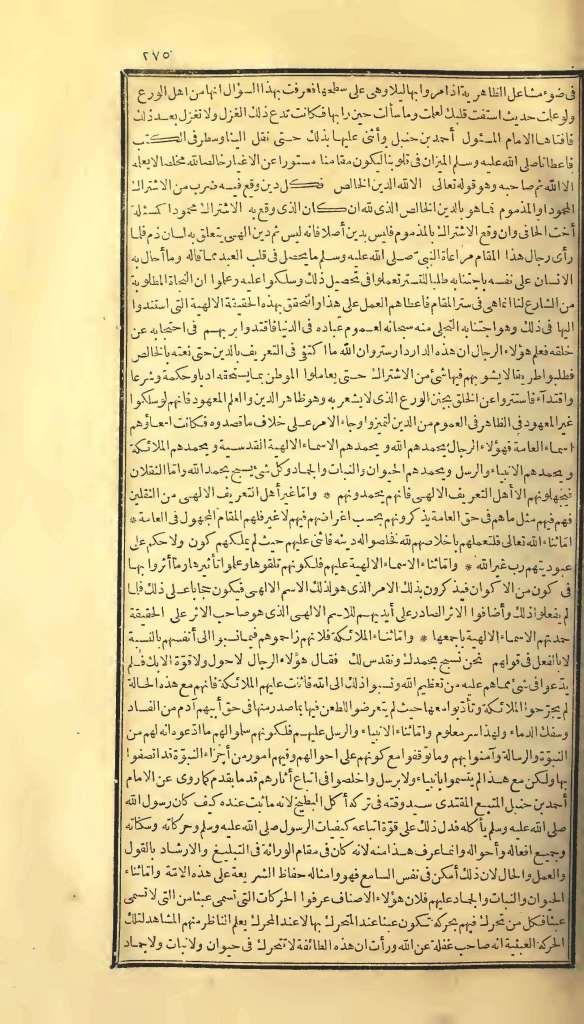 ٢٧٥
فى ضوء مشاعل الظاهرية اذا مروا بها ليلا وهى على سطحها فعرفت بهذا السؤال انها من أهل الورع
ولو علمت حديث استفت قلبك لعلمت وما سألت حين رابها فكانت تدع ذلك الغزل ولا تغزل بعد ذلك
فأفتاها الامام المسئول أحمد بن حنبل وأثنى عليها بذلك حتى نقل الينا وسطر فى الكتب
فأعطانا صلى الله عليه وسلم الميزان فى قلوبنا ليكون مقامنا مستورا عن الاغيار خالصا لله مخلصا لا يعلمه
الا الله ثم صاحبه وهو قوله تعالى ألا لله الدين الخالص فكل دين وقع فيه ضرب من الاشتراك
المحمود أو المذموم فما هو بالدين الخالص الذى لله ان كان الذى وقع به الاشتراك محمودا كمسئلة
أخت الحافى وان وقع الاشتراك بالمذموم فليس بدين أصلا فانه ليس ثم دين الهى يتعلق به لسان ذم فلما
رأى رجال هذا المقام مراعاة النبى صلى الله عليه وسلم ما يحصل فى قلب العبد مما قاله وما أحال به
الانسان على نفسه باجتنابه طلبا للتستر تعملوا فى تحصيل ذلك وسلكوا عليه وعلموا ان النجاة المطلوبة
من الشارع لنا انما هى فى ستر المقام فأعطاهم العمل على هذا والتحقق بهذه الحقيقة الالهية التى استندوا
اليها فى ذلك وهو اجتنابه التجلى منه سبحانه لعموم عباده فى الدنيا فاقتدوا بربهم فى احتجابه عن
خلقه فعلم هؤلاء الرجال ان هذه الدار دار ستر وان الله ما اكتفى فى التعريف بالدين حتى نعته بالخالص
فطلبوا طريقا لا يشوبهم فيها شئ من الاشتراك حتى يعاملوا الموطن بما يستحقه أدبا وحكمة وشرعا
واقتداء فاستتروا عن الخلق بجنن الورع الذى لا يشعر به وهو ظاهر الدين والعلم المعهود فانهم لو سلكوا
غير المعهود فى الظاهر فى العموم من الدين لتميزوا وجاء الامر على خلاف ما قصدوه فكانت أسماؤهم
أسماء العامة فهؤلاء الرجال يحمدهم الله ويحمدهم الاسماء الالهية القدسية ويحمدهم الملائكة
ويحمدهم الانبياء والرسل ويحمدهم الحيوان والنبات والجماد وكل شئ يسبح بحمد الله وأما الثقلان
فيجهلونهم الا أهل التعريف الالهى فانهم يحمدونهم * وأما غير أهل التعريف الالهى من الثقلين
فهم فيهم مثل ما هم فى حق العامة يذكرونهم بحسب اغراضهم فيهم لا غير فلهم المقام المجهول فى العامة *
أما ثناء الله تعالى فلتعملهم باخلاصهم لله فخلصوا له دينه فأثنى عليهم حيث لم يملكهم كون ولا حكم على
عبوديتهم رب غير الله * وأما ثناء الاسماء الالهية عليهم فلكونهم تلقوها وعلموا تأثيرها وما أثروا بها
فى كون من الاكوان فيذكرون بذلك الامر الذى هو لذلك الاسم الالهى فيكون حجابا على ذلك فلما
لم يفعلوا ذلك وأضافوا الاثر الصادر على أيديهم للاسم الالهى الذى هو صاحب الاثر على الحقيقة
حمدتهم الاسماء الالهية بأجمعها * وأما ثناء الملائكة فلانهم زاحموهم فيما نسبوا الى أنفسهم بالنسبة
لا بالفعل فى قولهم نحن نسبح بحمدك ونقدس لك فقال هؤلاء الرجال لا حول ولا قوة الا بك فلم
يدعوا فى شئ مما هم عليه من تعظيم الله ونسبوا ذلك الى الله فأثنت عليهم الملائكة فانهم مع هذه الحالة
لم يجرحوا الملائكة وتأدبوا معها حيث لم يتعرضوا للطعن فيها بما صدر منها فى حق أبيهم آدم من الفساد
وسفك الدماء ولهذا سر معلوم وأما ثناء الانبياء والرسل عليهم فلكونهم سلموا لهم ما ادعوه انه لهم من
النبوة والرسالة وآمنوا بهم وما توقفوا مع كونهم على أحوالهم وفيهم أمور من أجزاء النبوة قد اتصفوا
بها ولكن مع هذا لم يتسموا بأنبياء ولا برسل وأخلصوا فى اتباع آثارهم قدما بقدم كما روى عن الامام
أحمد بن حنبل المتبع المقتدى سيد وقته فى تركه أكل البطيخ لانه ما ثبت عنده كيف كان رسول الله
صلى الله عليه وسلم يأكله فدل ذلك على قوة اتباعه كيفيات الرسول صلى الله عليه وسلم وحركاته وسكاته
وجميع أفعاله وأحواله وانما عرف هذا منه لانه كان فى مقام الوراثة فى التبليغ والارشاد بالقول
والعمل والحال لان ذلك أمكن فى نفس السامع فهو وأمثاله حفاظ الشريعة على هذه الامة وأما ثناء
الحيوان والنبات والجماد عليهم فلان هؤلاء الاصناف عرفوا الحركات التى تسمى عبثا من التى لا تسمى
عبثا فكل من تحرك فيهم بحركة تكون عبثا عند المتحرك بها لا عند المحرك يعلم الناظر منهم المشاهد لتلك
الحركة العبثية انه صاحب غفلة عن الله ورأت ان هذه الطائفة لا تتحرك فى حيوان ولا نبات ولا جماد